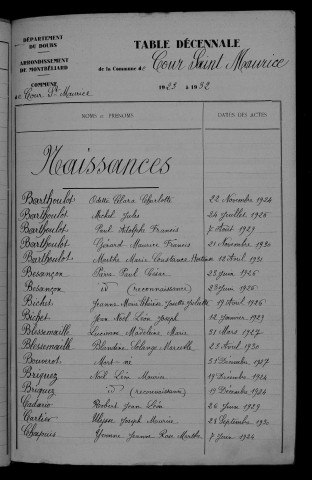 DÉPARTEMENT
DU DOUBS
ARRONDISSEMENT
DE MONTBÉLIARD
COMMUNE
de Cour St Maurice
TABLE DÉCENNALE
de la Commune de Cour Saint Maurice
1923 à 1932
NOMS et PRÉNOMS
DATES DES ACTES
Naissances
Barthoulot Odette Clara Charlotte 22 Novembre 1924
Barthoulot Michel Jules 24 Juillet 1926
Barthoulot Paul Adolphe Francis 7 Août 1929
Barthoulot Gérard Maurice Francis 21 Novembre 1930
Barthoulot Marthe Marie Constance 12 Avril 1931
Besançon Paul César 23 Juin 1926
Besançon id (reconnaissance) 23 Juin 1926
Bichet Jeanne Marie Juliette 19 Avril 1926
Bichet Jean Noël Léon Joseph 12 Janvier 1929
Blessemaille Lucienne Madeleine Marie 31 Mars 1927
Blessemaille Blandine Solange Marcelle 25 Avril 1930
Bouverot Mort-né 31 Décembre 1927
Briquez Noël Léon Maurice 17 Décembre 1924
Briquez id (reconnaissance) 19 Décembre 1924
Cadario Robert Jean Léon 26 Juin 1929
Cartier Ulysse Joseph Maurice 23 Septembre 1930
Chapuis Yvonne Jeanne Rose Marthe 7 Juin 1924